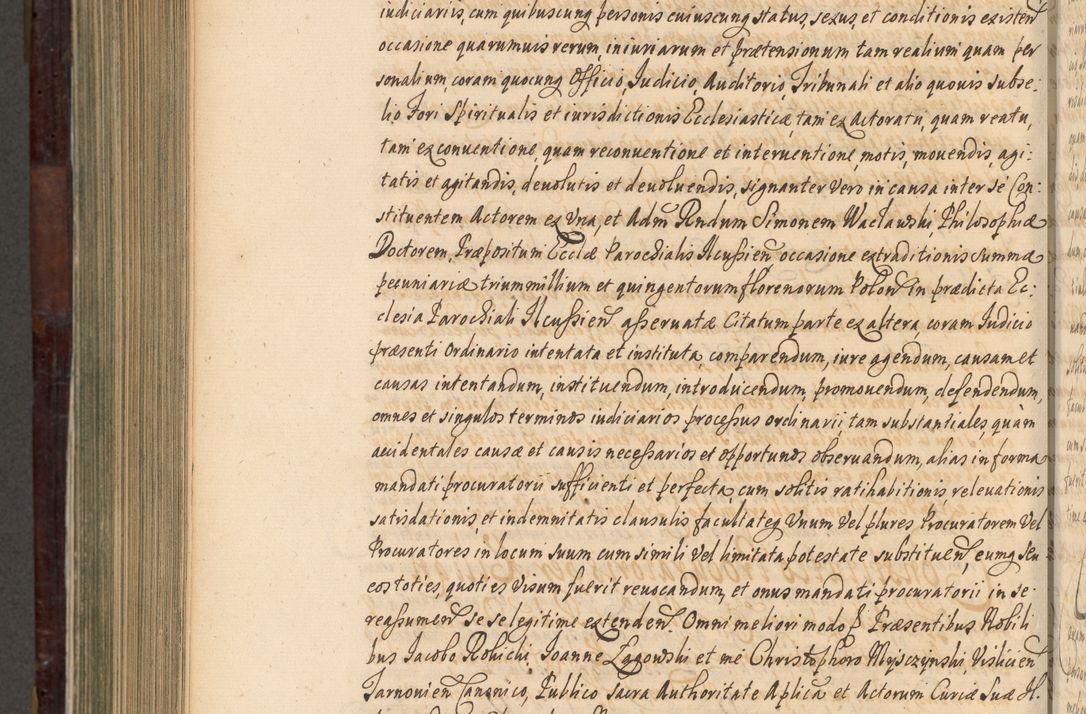 iudiciariis cum quibuscunq personis cuiuscunq status, sexus, et conditionis existen
occasione quarumuis rerum, iniuriarum et prætensionum tam realium quam per
sonalium, coram quocunq Officio, Judicio, Auditorio, Tribunali et alio quouis subse:
lio Fori Spiritualis et iurisdictionis Ecclesiasticæ, tam ex Actoratu, quam reatu,
tam ex conuentione, quam reconuentione et interuentione, motis, mouendis, agi:
tatis et agitandis, deuolutis et deuoluendis, signanter Vero in causa inter se Con:
stituentem Actorem ex Una, et Adm Rndum Simonem Wacławski, Philosophiæ
Doctorem, Præpositum Eccliæ Parochialis Ilcussien occasione extraditionis summæ
pecuniariæ trium millium et quingentorum florenorum Polon in prædicta Ec:
clesia Parochiali Ilcussien asseruatæ Citatum parte ex altera, coram Judicio
præsenti Ordinario intentata et instituta, comparendum, iure agendum, causam et
causas intentandum, instituendum, introducendum, promouendum, defendendum,
omnes et singulos terminos iudiciarios processus ordinarii, tam substantiales, quàm
accidentales causæ et causis necessarios et opportunos obseruandum, alias in forma
mandati procuratorii sufficienti et perfecta, cum solitis ratihabitionis, releuationis
satisdationis, et indemnitatis clausulis facultateq Unum Vel plures Procuratorem Vel
Procuratores in locum suum cum simili Vel limitata potestate substituen, eumq seu
eos toties, quoties Visum fuerit reuocandum, et onus mandati procuratorii in se
reassumen se se legitime extenden. Omni meliori modo Præsentibus Nobili
bus Jacobo Robichi, Joanne Łagowski et me Christophoro Mysczynski, Vislicien
Tarnouien Canonico, Publico Sacra Authoritate Aplica et Actorum Curiæ Suæ Il.